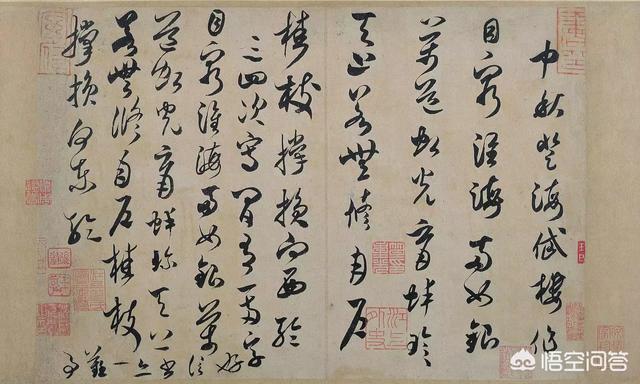 中秋登海岱樓作
目窮淮海兩如銀
萬道虹光育蚌珍
天上若無脩月戶
桂枝撐損向西輪
三四次寫間有一兩字
好
信
書亦一
難事
目窮淮海兩如銀萬
道虹光育蚌珍天上
若無脩月戶桂枝
撐損向東輪
悟空问答